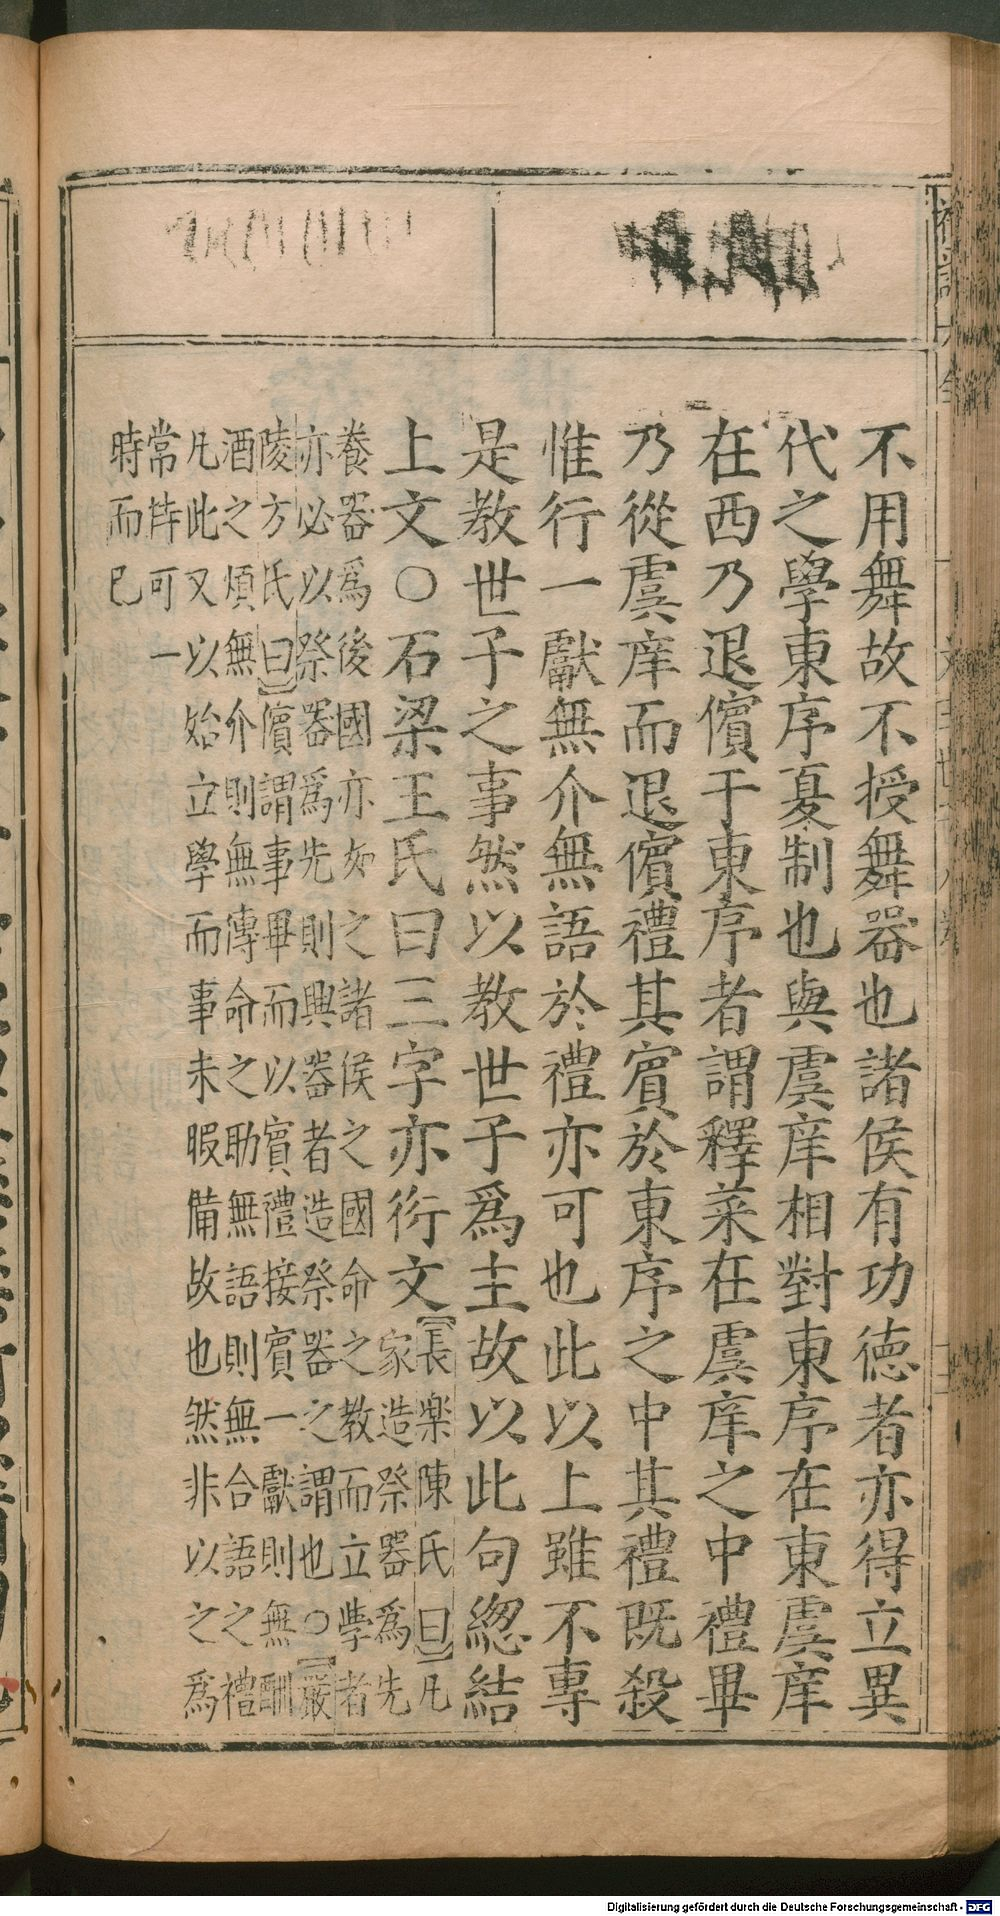 不用舞故不授舞器也諸侯有功徳者亦得立異
代之學東序夏制也與虞庠相對東序在東虞庠
在西乃退儐于東序者謂釋菜在虞庠之中禮畢
乃從虞庠而退儐禮其賓於東序之中其禮既殺
惟行一獻無介無語於禮亦可也此以上雖不專
是教世子之事然以教世子爲主故以此句緫結
上文○石梁王氏曰三字亦衍文
長楽陳氏曰凡
家造祭器爲先
養器爲後國亦如之諸侯之國命之教而立斈者
亦必以祭器爲先則興器者造祭器之謂也○嚴
陵方氏曰儐謂事畢而以賓禮接賓一獻則無酬
酒之煩無介則無傳命之助無語則無合語之禮
凡此又以始立學而事未暇備故也然非以之爲
常特可一
時而已
Digitalisierung gefördert durch die Deutsche Forschungsgemeinschaft - DFG